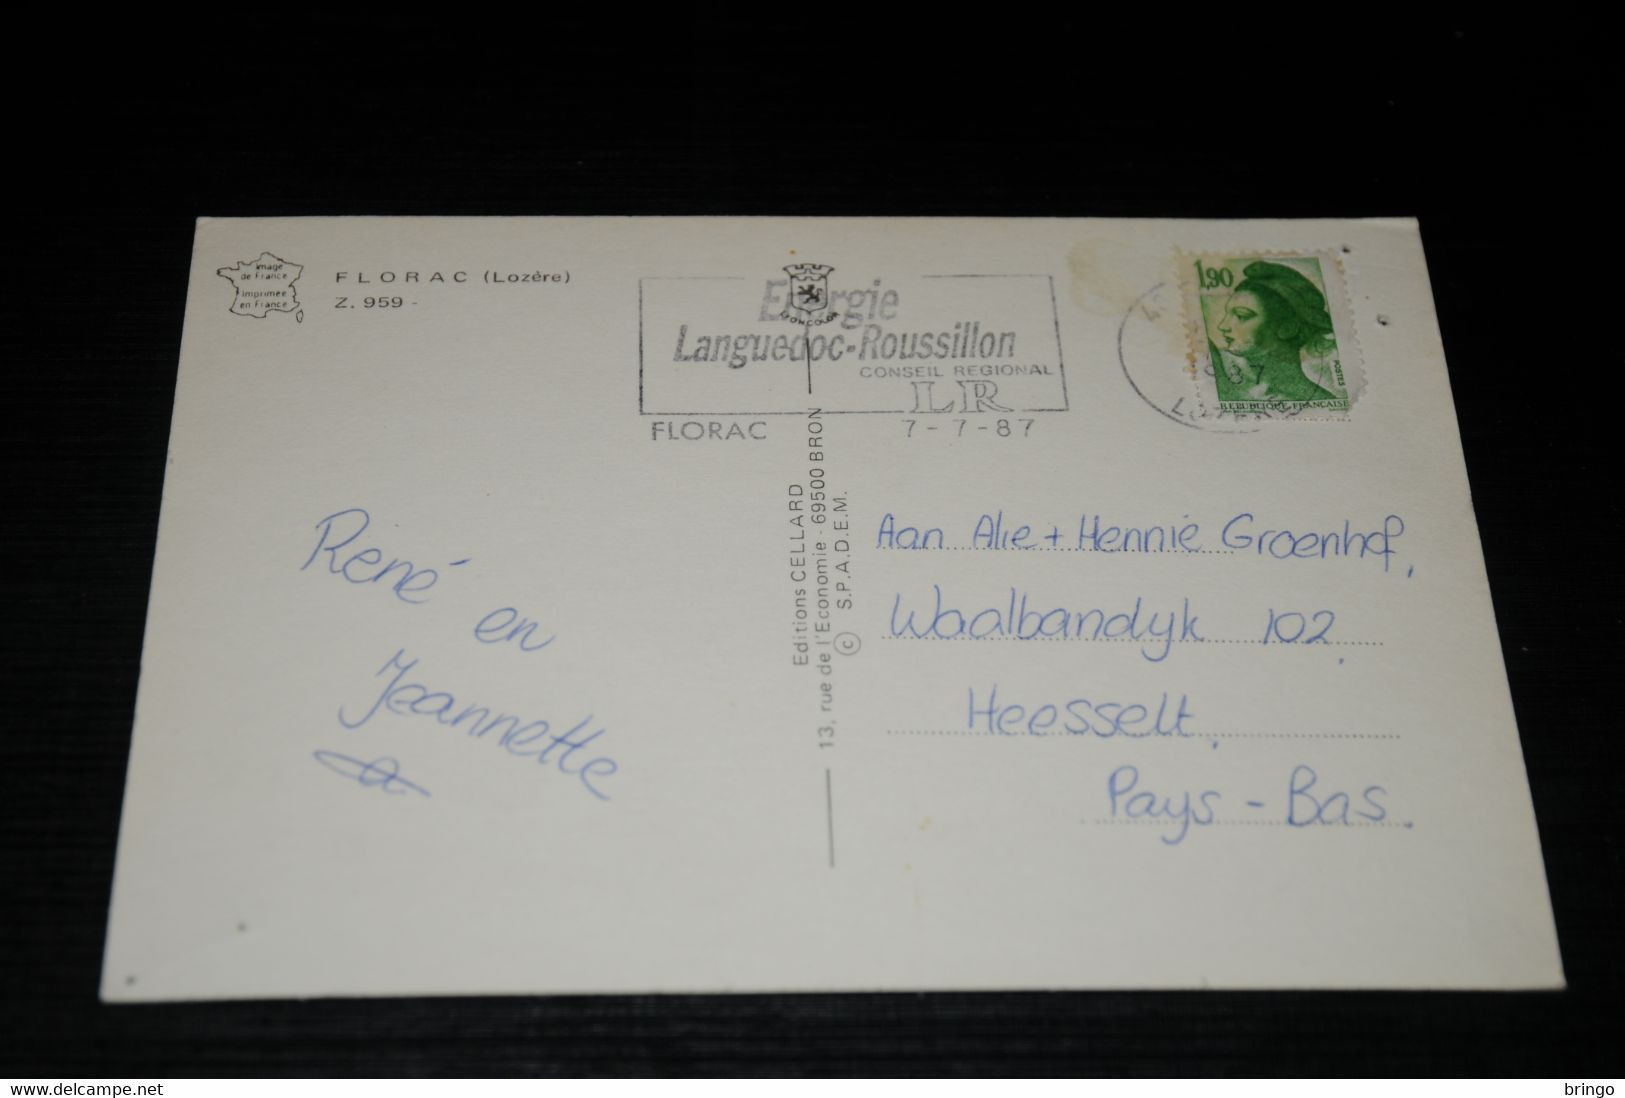 image
de France
imprimée
en France
FLORAC (Lozère)
Z. 959 -
Energie
LYONCOLOR
Languedoc-Roussillon
CONSEIL REGIONAL
LR
FLORAC 7-7-87
87
LOZERE
1,90
POSTES
REPUBLIQUE FRANCAISE
Editions CELLARD
13, rue de l'Economie - 69500 BRON
© S.P.A.D.E.M.
René
en
Jeannette
Aan Alie + Hennie Groenhof,
Waalbandyk 102,
Heesselt,
Pays-Bas.
delcampe.net
bringo